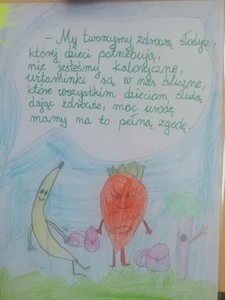 - My tworzymy zdrową słodycz,
której dzieci potrzebują,
nie jesteśmy kaloryczne,
witaminki są w nas śliczne,
które wszystkim dzieciom służą
dając zdrowie, moc urodę
mamy na to pełną zgodę.